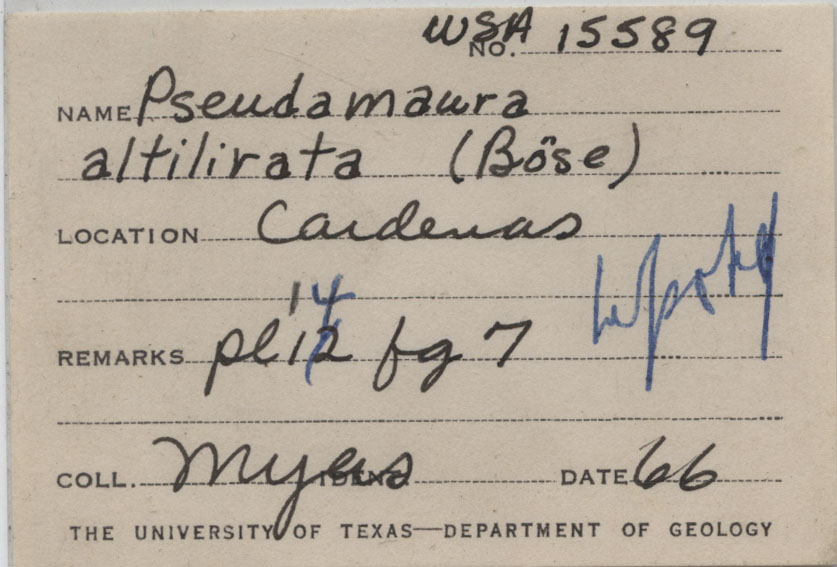 WSA
NO. 15589
NAME Pseudamaura
altilirata (Böse)
LOCATION Cardenas
14
REMARKS pl 12 fg 7
COLL. Myers IDENT. DATE 66
THE UNIVERSITY OF TEXAS—DEPARTMENT OF GEOLOGY